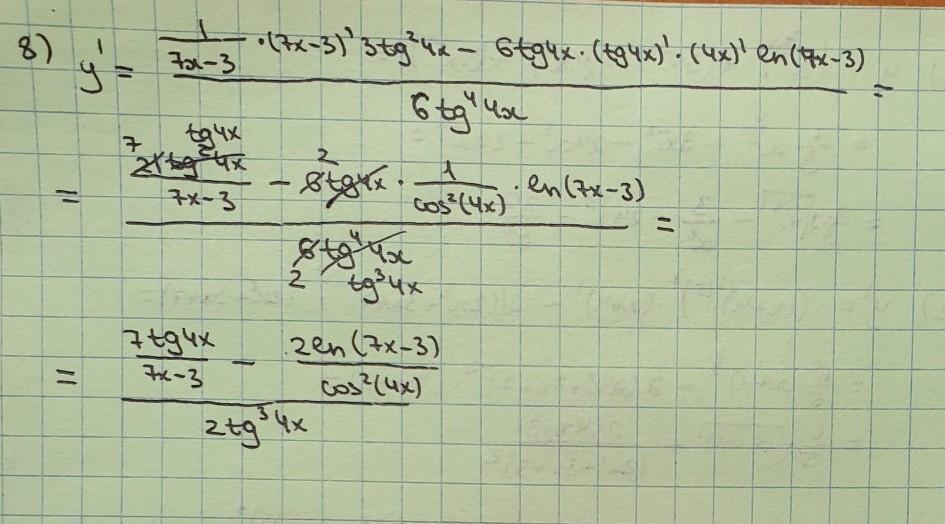 8) y' = (1/(7x-3) · (7x-3)' 3tg²4x - 6tg4x · (tg4x)' · (4x)' ln(7x-3)) / (6tg⁴4x) =
7 tg4x
= (21tg²4x/(7x-3) - 6tg4x · 1/cos²(4x) · ln(7x-3)) / (6tg⁴4x) =
2
2 tg³4x
= (7tg4x/(7x-3) - 2ln(7x-3)/cos²(4x)) / (2tg³4x)